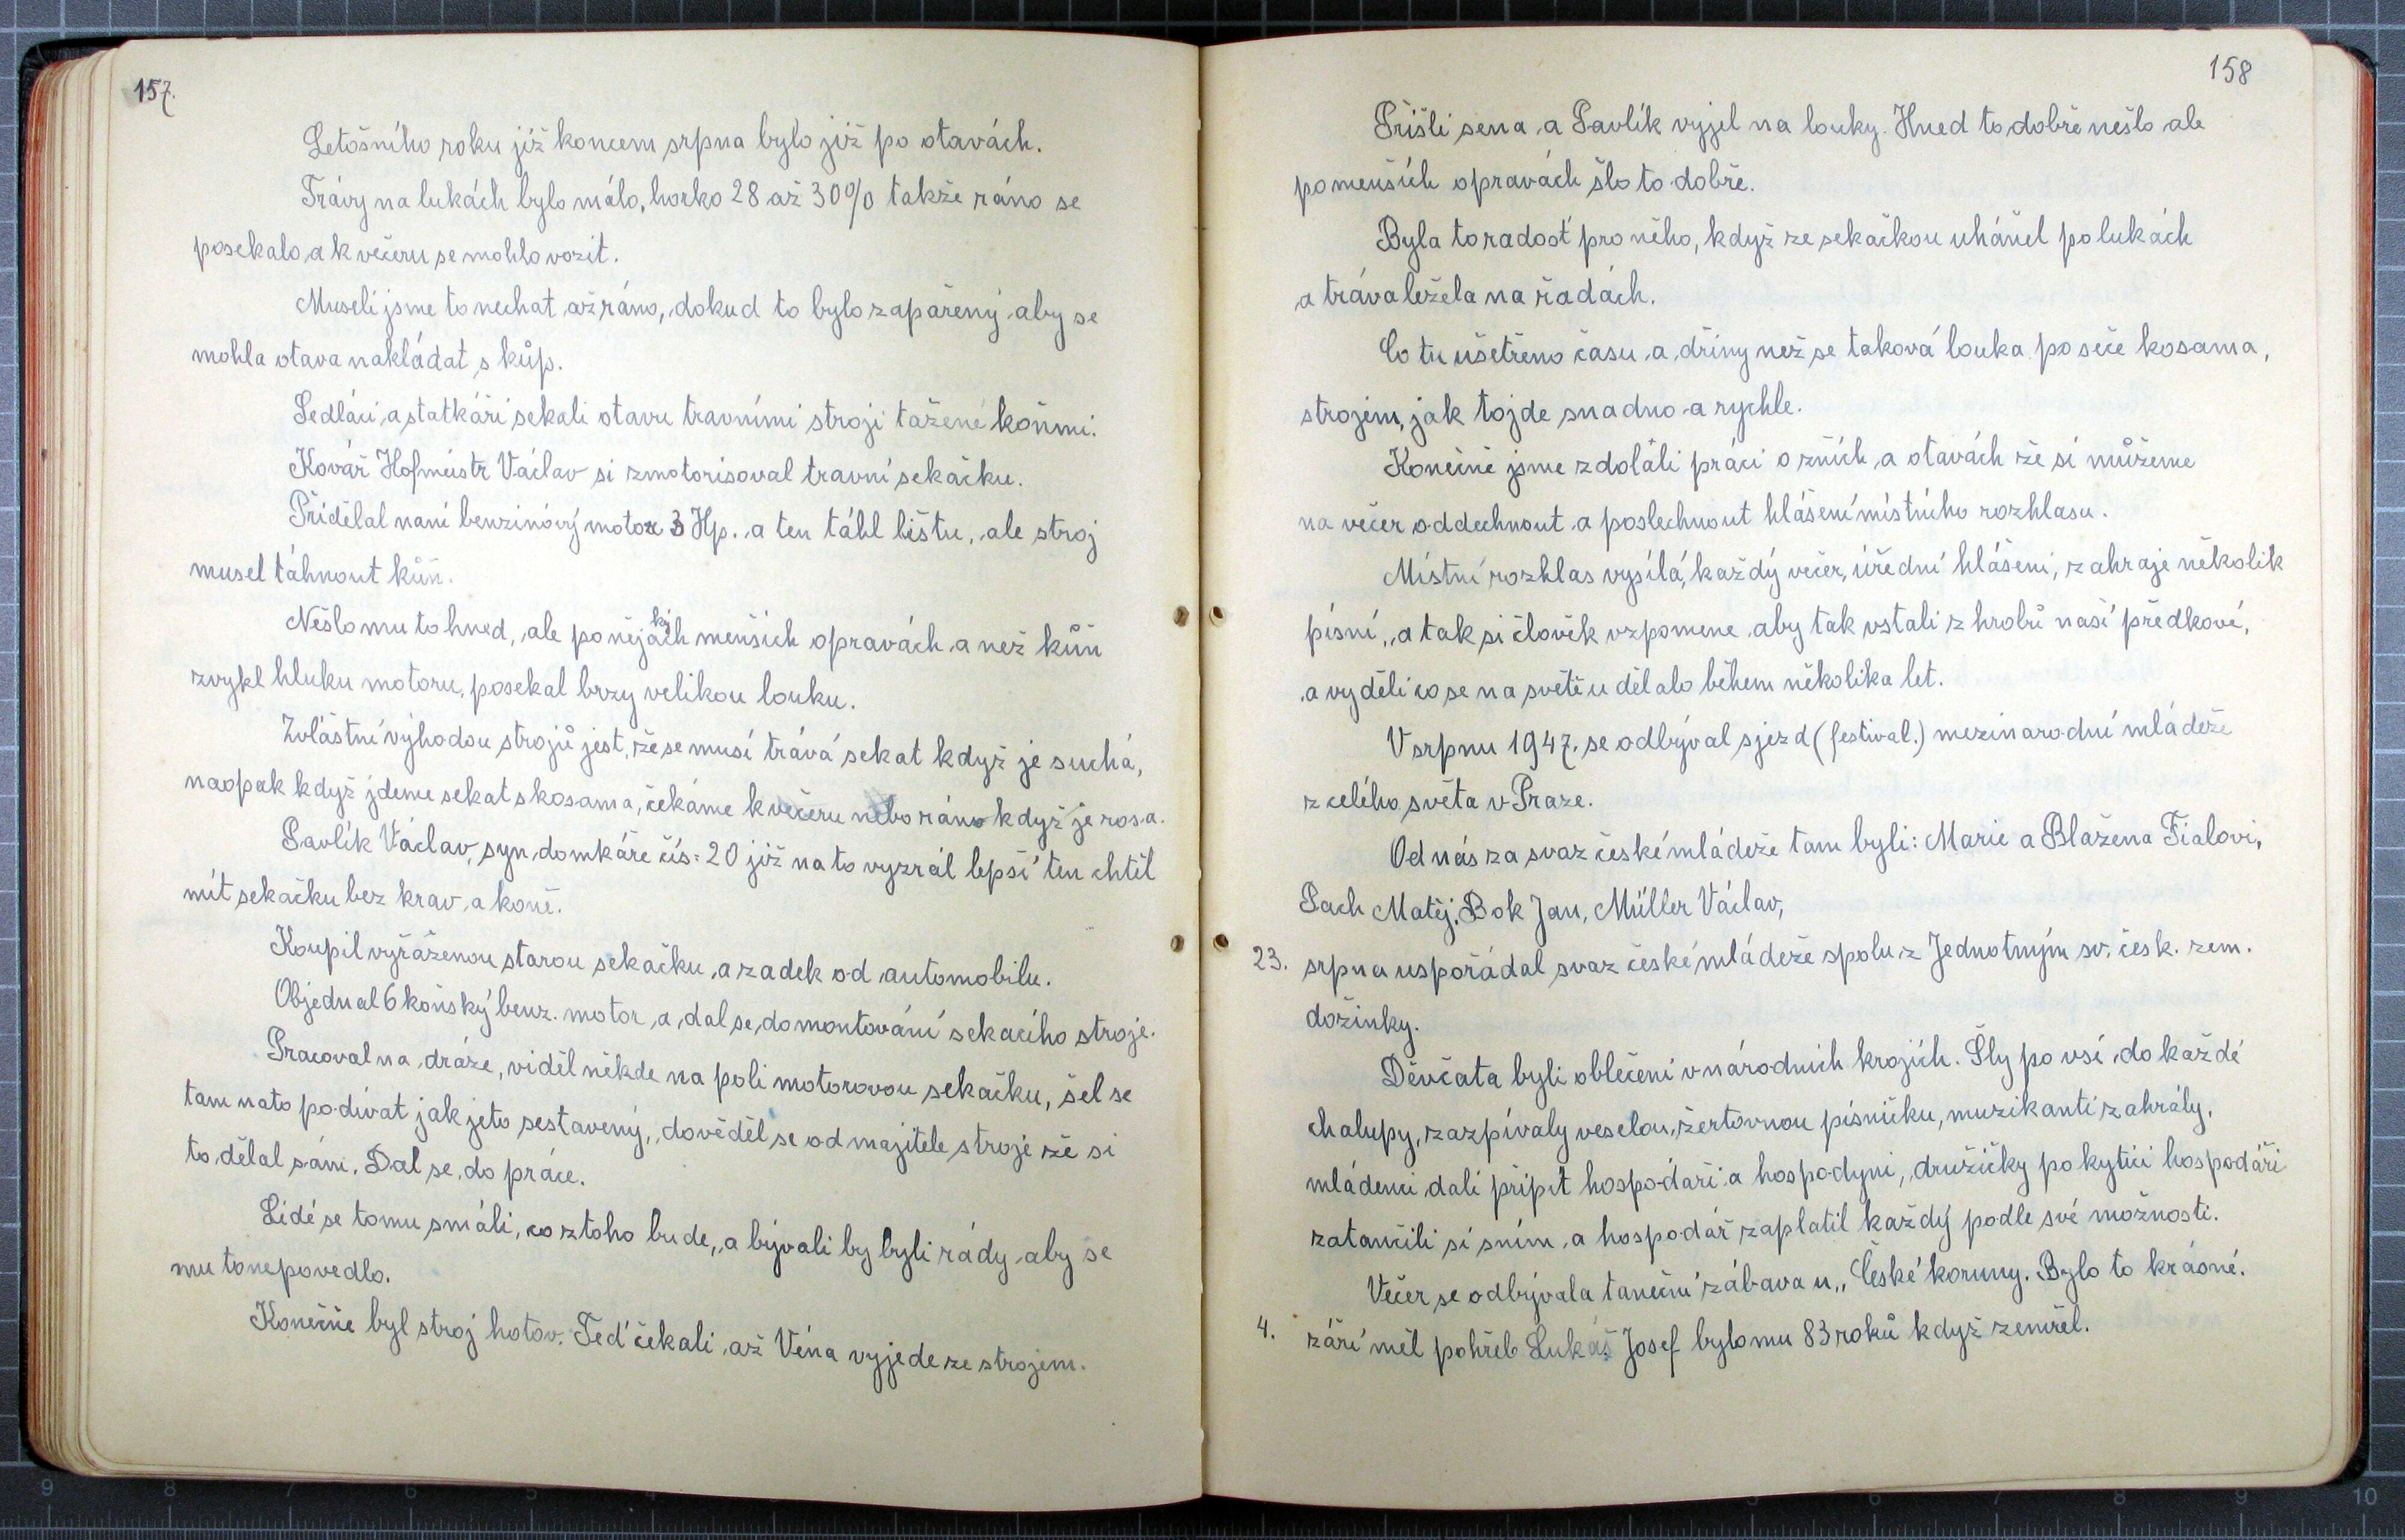 157.
Letošního roku již koncem srpna bylo již po otavách.
Trávy na lukách bylo málo, horko 28 až 30% takže ráno se
posekalo a k večeru se mohlo vozit.
Museli jsme to nechat až ráno, dokud to bylo zapařený aby se
mohla otava nakládat s kůp.
Sedláci a statkáři sekali otavu travními stroji tažené koňmi.
Kovář Hofmeistr Václav si zmotorisoval travní sekačku.
Přidělal naní benzinový motor 3 Hp. a ten táhl lištu, ale stroj
musel táhnout kůň.
Nešlo mu to hned, ale po nějakých menších opravách a než kůň
zvykl hluku motoru, posekal brzy velikou louku.
Zvláštní výhodou strojů jest, že se musí trává sekat když je suchá,
naopak když jdeme sekat s kosama, čekáme k večeru nebo ráno když je rosa.
Pavlík Václav, syn domkáře čís: 20 již na to vyzrál lepší ten chtěl
mít sekačku bez krav a koně.
Koupil vyřáženou starou sekačku a zadek od automobilu.
Objednal 6 koňský benz. motor, a dal se do montování sekacího stroje.
Pracoval na dráze, viděl někde na poli motorovou sekačku, šel se
tam nato podívat jak jeto sestavený, dověděl se od majitele stroje že si
to dělal sám. Dal se do práce.
Lidé se tomu smáli, co ztoho bude, a bývali by byli rády aby se
mu tonepovedlo.
Konečně byl stroj hotov. Teď čekali až Véna vyjede ze strojem.
158
Přišli sena a Pavlík vyjel na louky. Hned to dobře nešlo ale
pomenších opravách šlo to dobře.
Byla to radost pro něho, když ze sekačkou uháněl po lukách
a tráva ležela na řadách.
Co tu ušetřeno času a dřiny než se taková louka poseče kosama,
strojem, jak tojde snadno a rychle.
Konečně jsme zdolali práci o žních a otavách že si můžeme
na večer oddechnout a poslechnout hlášení místního rozhlasu.
Místní rozhlas vysílá, každý večer, úřední hlášení, zahraje několik
písní, a tak si člověk vzpomene aby tak vstali z hrobů naší předkové,
a vyděli co se na světě u dělalo během několika let.
V srpnu 1947. se odbýval sjezd (festival.) mezinarodní mládeže
z celého světa v Praze.
Od nás za svaz české mládeže tam byli: Marie a Blažena Fialovi,
Pach Matěj, Bok Jan, Müller Václav,
23. srpna uspořádal svaz české mládeže spolu z Jednotným sv. česk. zem.
dožinky.
Děvčata byli oblečení v národních krojích. Šly po vsi do každé
chalupy, zazpívaly veselou, žertovnou písničku, muzikanti zahrály,
mládenci dali připít hospodáři a hospodyni, družičky po kytici hospodáři
zatančili si sním a hospodář zaplatil každý podle své možnosti.
Večer se odbývala taneční zábava u „České koruny. Bylo to krásné.
4. září měl pohřeb Lukáš Josef bylo mu 83 roků když zemřel.
9 8 7 6 5 4
5 6 7 8 9 10